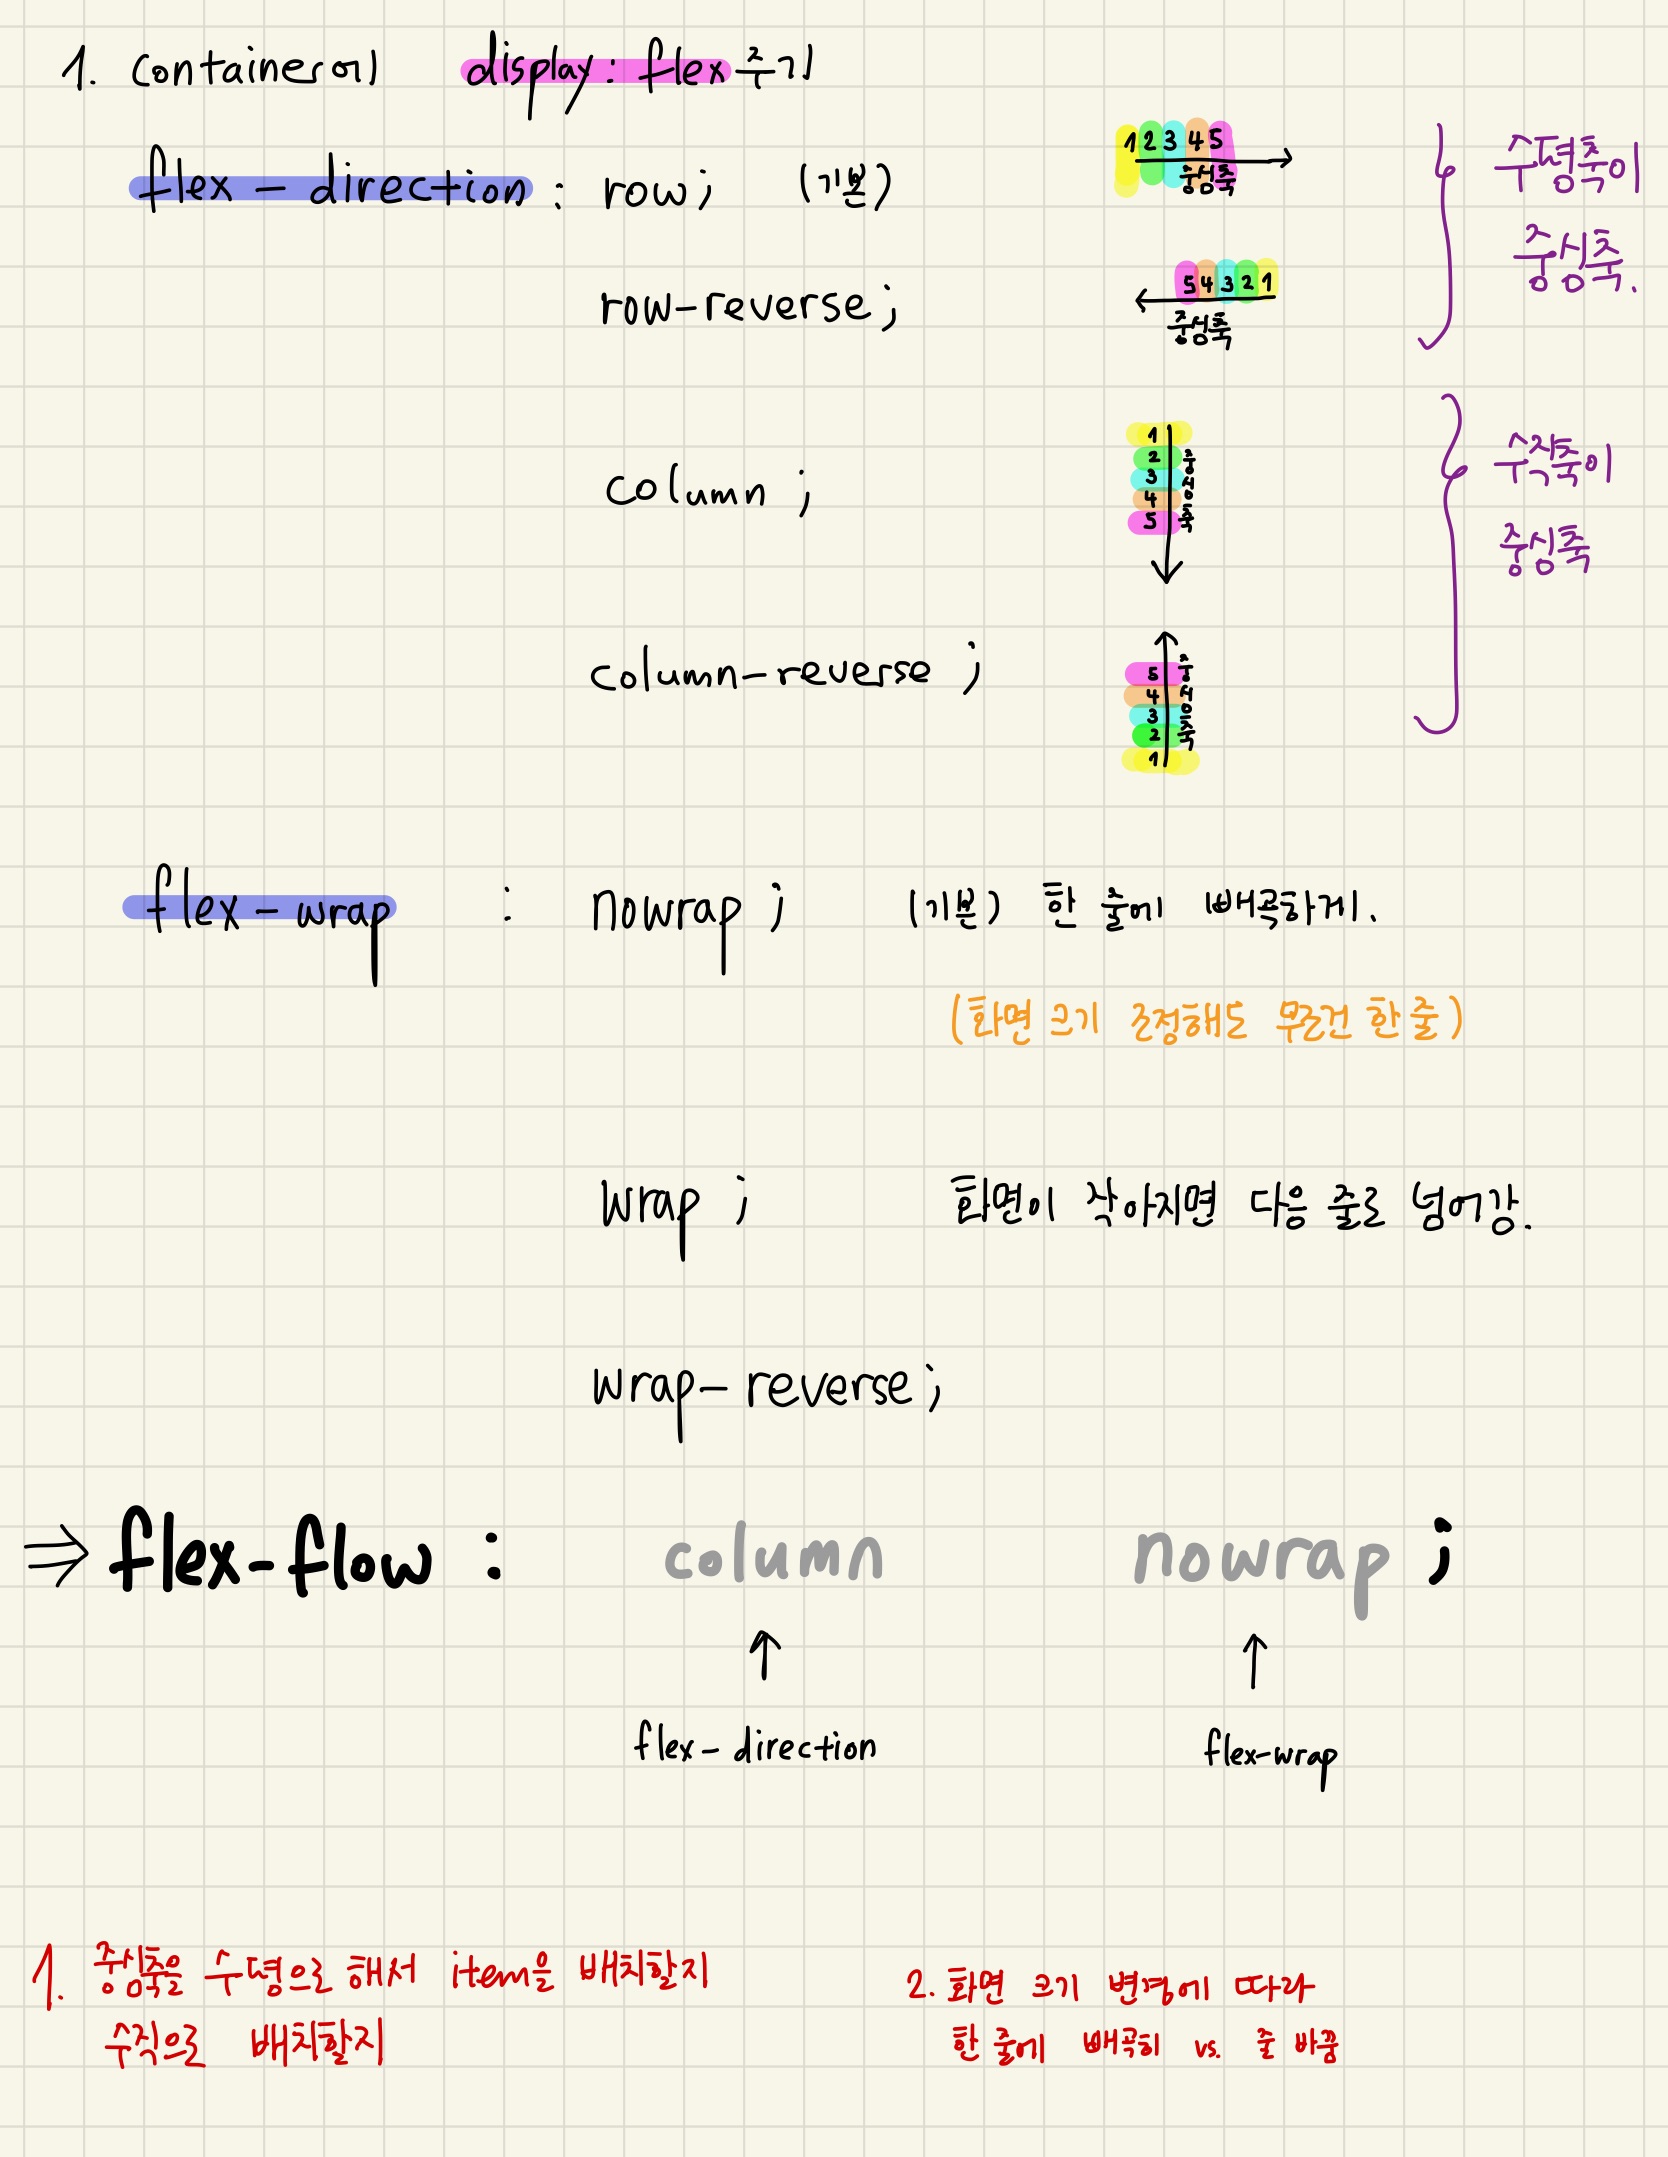 1. container에 display: flex 주기
flex - direction : row; (기본)
1 2 3 4 5
중심축
수평축이
중심축.
row-reverse;
5 4 3 2 1
중심축
column ;
1
2
3
4
5
중심축
수직축이
중심축
column-reverse ;
5
4
3
2
1
중심축
flex - wrap : nowrap ; (기본) 한 줄에 빼곡하게.
(화면 크기 조정해도 무조건 한 줄)
wrap ; 화면이 작아지면 다음 줄로 넘어감.
wrap-reverse;
⇒ flex-flow : column nowrap ;
↑ ↑
flex-direction flex-wrap
1. 중심축을 수평으로 해서 item을 배치할지
수직으로 배치할지
2. 화면 크기 변경에 따라
한 줄에 빼곡히 vs. 줄 바꿈